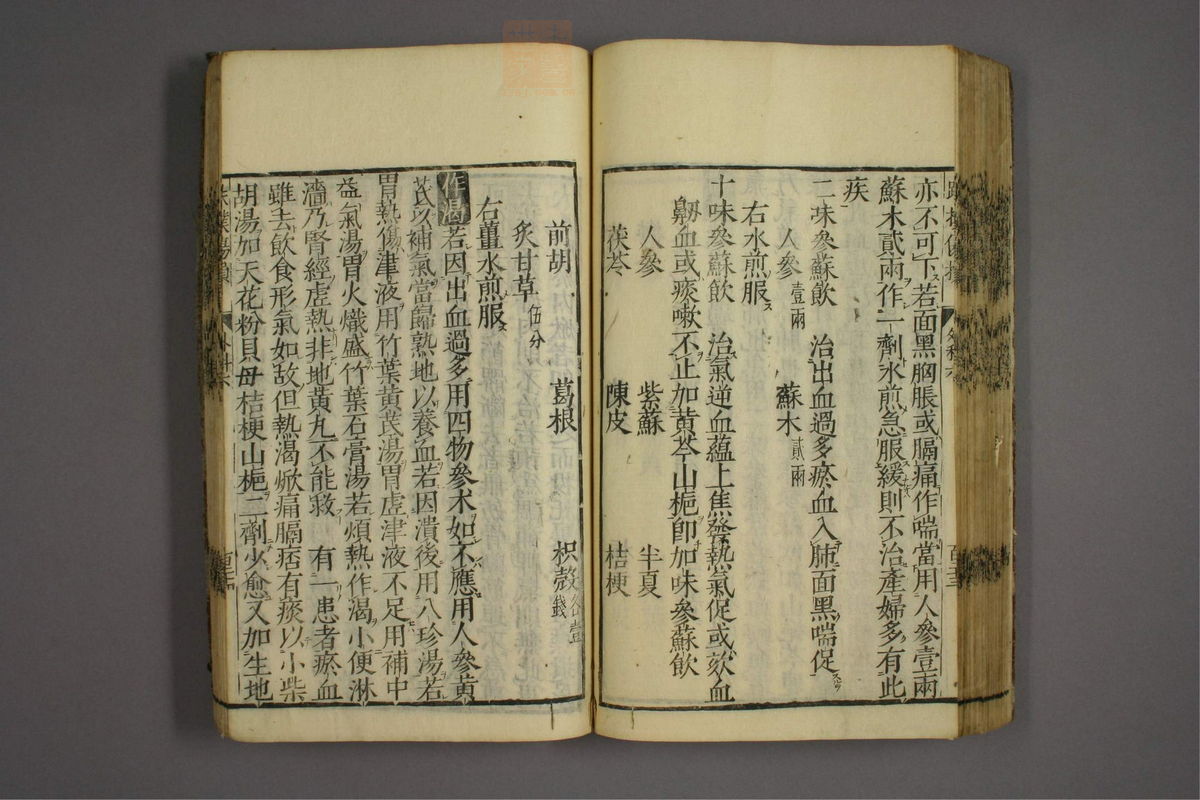 亦不可下若面黑胸脹或膈痛作喘當用人參壹兩
蘇木貳兩作一劑水煎急服緩則不治產婦多有此
疾
二味參蘇飲 治出血過多瘀血入肺面黑喘促
人參壹兩 蘇木貳兩
右水煎服
十味參蘇飲 治氣逆血蘊上焦發熱氣促或欬血
衂血或痰嗽不止加黃芩山梔卽加味參蘇飲
人參 紫蘇 半夏
茯苓 陳皮 桔梗
前胡 葛根 枳殼各壹錢
炙甘草伍分
右薑水煎服
作渴若因出血過多用四物參朮如不應用人參黃
芪以補氣當歸熟地以養血若因潰後用八珍湯若
胃熱傷津液用竹葉黃芪湯胃虛津液不足用補中
益氣湯胃火熾盛竹葉石膏湯若煩熱作渴小便淋
濇乃腎經虛熱非地黃丸不能救 有一患者瘀血
雖去飲食形氣如故但熱渴焮痛膈痞有痰以小柴
胡湯加天花粉貝母桔梗山梔二劑少愈又加生地